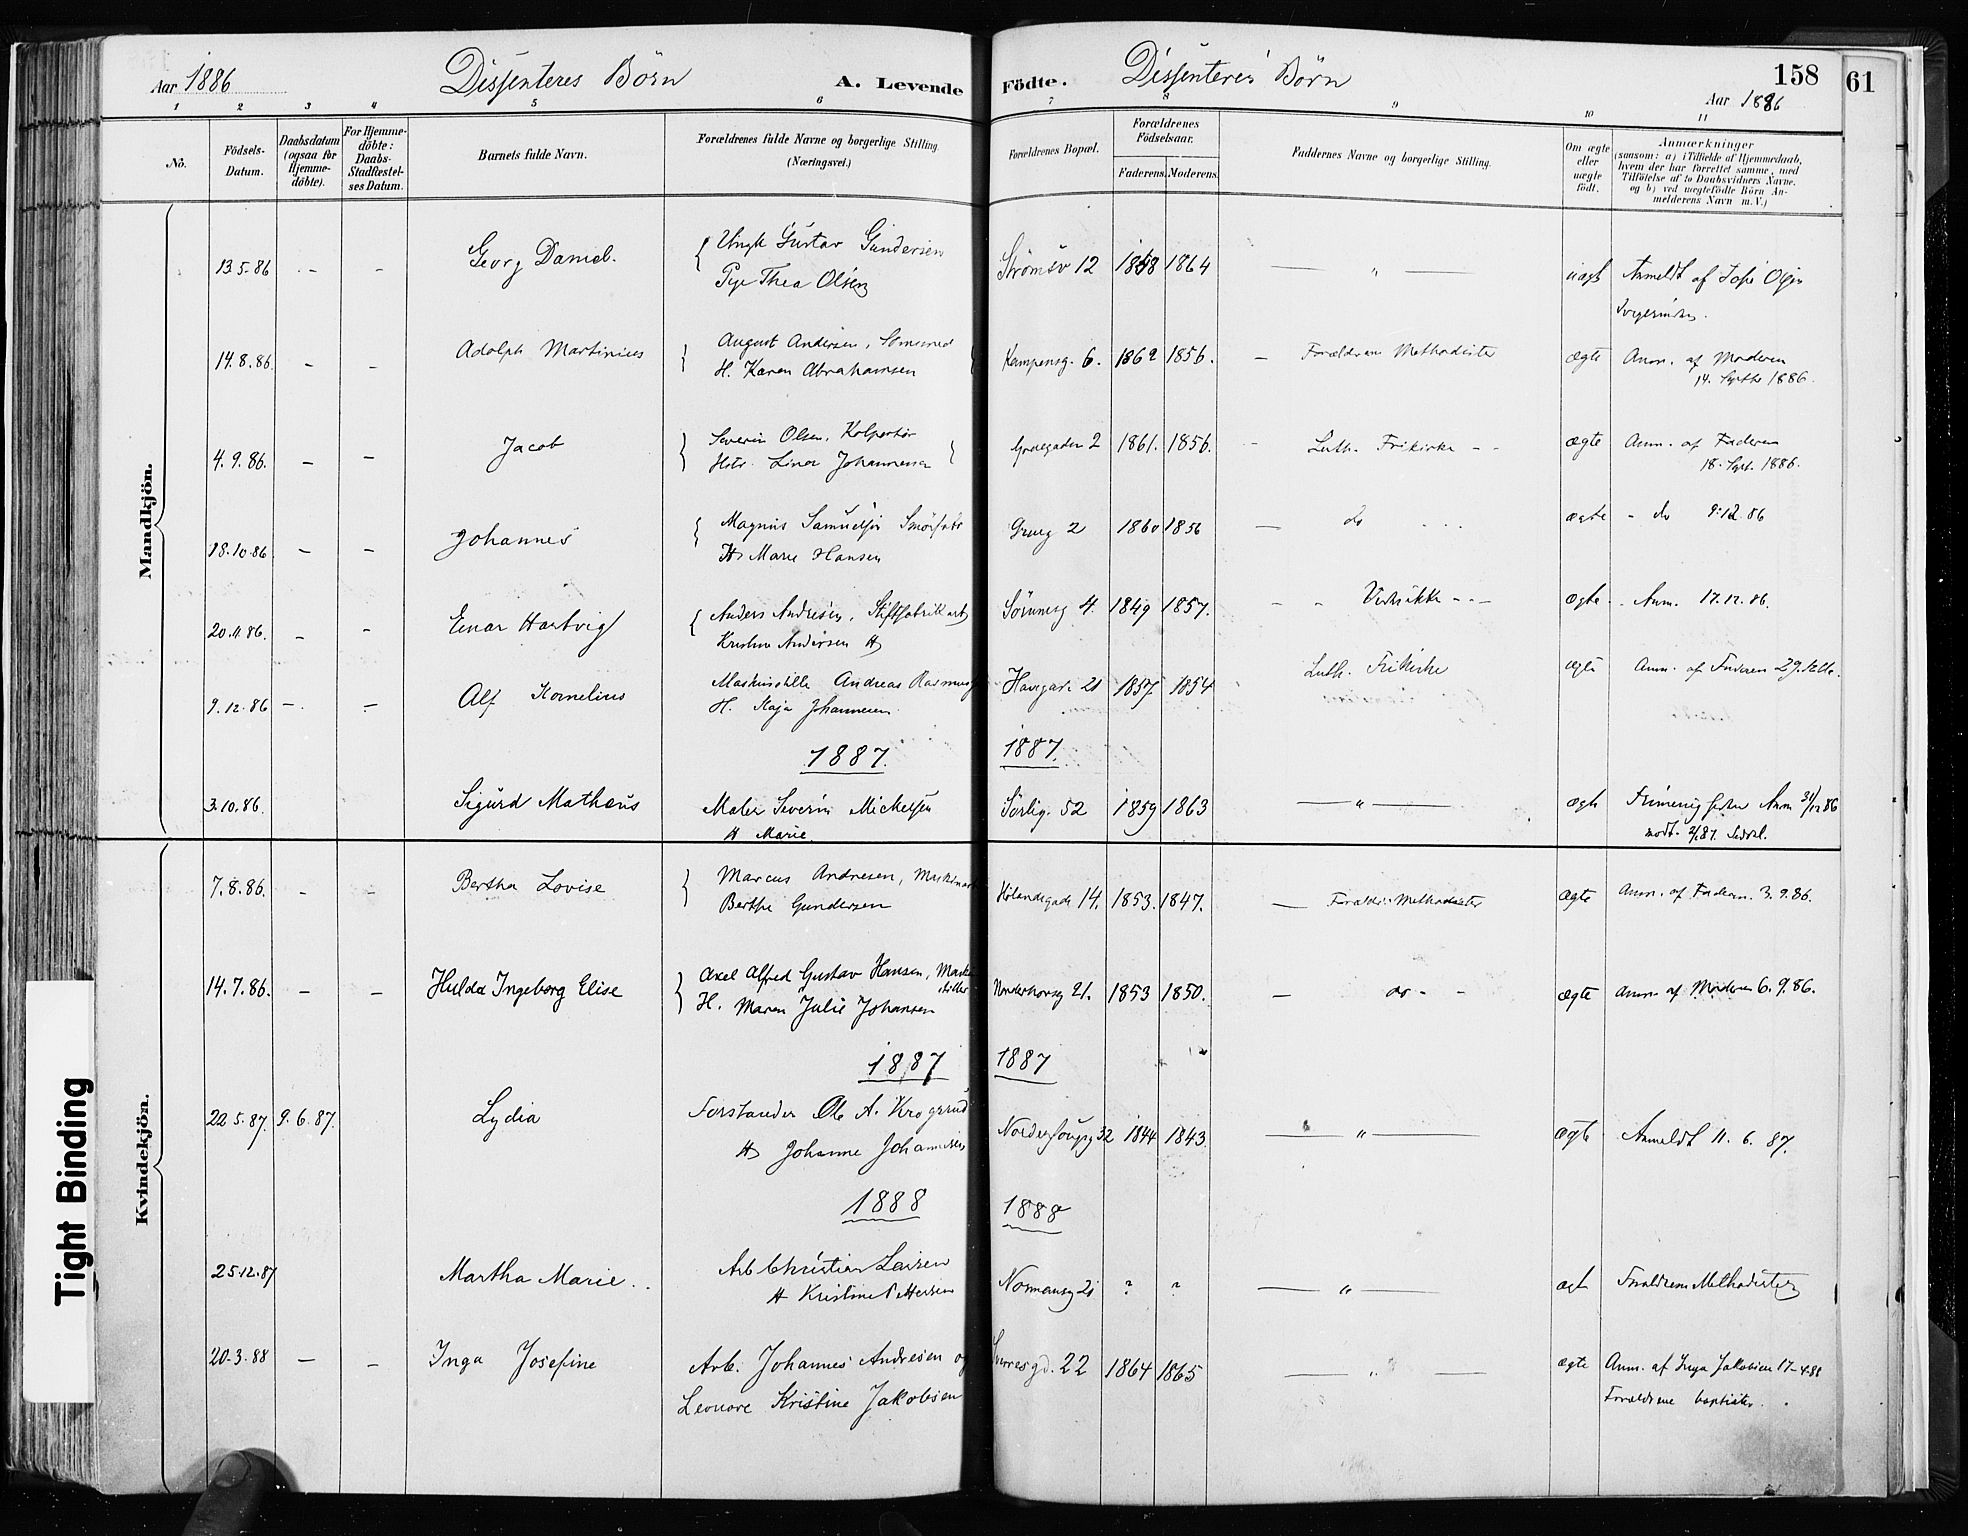 Aar 1886 Dissenteres Börn A. Levende Födte. Dissenteres Börn 158 61
Aar 1886
1 2 3 4 5 6 7 8 9 10 11
No.
Födsels-Datum.
Daabsdatum (ogsaa for Hjemme-döbte).
For Hjemme-döbte: Daabs-Stadfæstel-ses Datum.
Barnets fulde Navn.
Forældrenes fulde Navne og borgerlige Stilling. (Næringsvei.)
Forældrenes Bopæl.
Forældrenes Födselsaar.
Faderens. Moderens.
Faddernes Navne og borgerlige Stilling.
Om ægte eller uægte födt.
Anmærkninger
(saasom: a) i Tilfælde af Hjemmedaab,
hvem der har forrettet samme, med
Tilföielse af to Daabsvidners Navne.
og b) ved uægtefödte Börn An-
melderens Navn m. V.)
Mandkjön.
13.5.86 - - Georg Daniel. Ungk Gustav Gundersen
Pige Thea Olsen
Strömsv 12 1858 1864 — " — uægt Anmeldt af
14.8.86. - - Adolph Martinius August Andersen,
H. Karen Abrahamsen
Kampensg. 6. 1862 1856. — Forældrene Methodister ægte Anm. af Moderen
14. Septbr 1886.
4.9.86. - - Jacob Severin Olsen, Kolportör
Hstr. Lina Johannesen
Grueegaden 2 1861. 1856. - Luth. Frikirke - - ægte Anm. af Faderen
18. Sept. 1886.
18.10.86 - - Johannes Magnus Samuelsen
H Marie Hansen
Grueg 2 1860 1856 — do ægte - do 9.12.86
20.11.86. - - Einar Hartvig Anders Andresen, Stiftfabrikarb
Kristine Andersen H
Sörumsg 4. 1849 1857. - - - - ægte - Anm. 17.12.86.
9.12.86 - - Alf Kornelius Maskinstille Andreas Rasmus
H. Kaja Johannesen
Havegade 21 1857 1854 Luth. Frikirke ægte Anm. af Faderen 29.
1887. 1887.
3.10.86. Sigurd Matheus Maler Severin Mickelsen
H Marie
Sörlig. 52 1859 1863 — " — ægte Anm 31/12 86
modt. 2/1 87.
Kvindekjön.
7.8.86. - - Bertha Lovise Marcus Andresen,
Berthe Gundersen
Hölandsgade 14. 1853. 1847. — Forældr. Methodister ægte Anm. af Faderen. 3.9.86.
14.7.86. - - Hulda Ingeborg Elise Axel Alfred Gustav Hansen, Maskin
stiller
H. Maren Julie Johansen
Nordenhovsg 21. 1853 1850. — do - - ægte Anm. af Moderen 6.9.86.
1887 1887
22.5.87. 9.6.87. Lydia Forstander Ole A. Krogsrud
H Johanne Johannesen
32 1844 1843. — " — ægte Anmeldt 11. 6. 87.
1888 1888
25.12.87 Martha Marie. Arb Christian Larsen
H Kristine Pettersen
Normansg 21 ? ? — " — ægt Forældrene Methodister
20-3.88 - - Inga Josefine Arb. Johannes Andresen og
Leonore Kristine Jakobsen
gd. 22 1864 1865 — " — ægte Anm. af Inga Jakobsen 17-4.88
Forældrene baptister.
Tight Binding